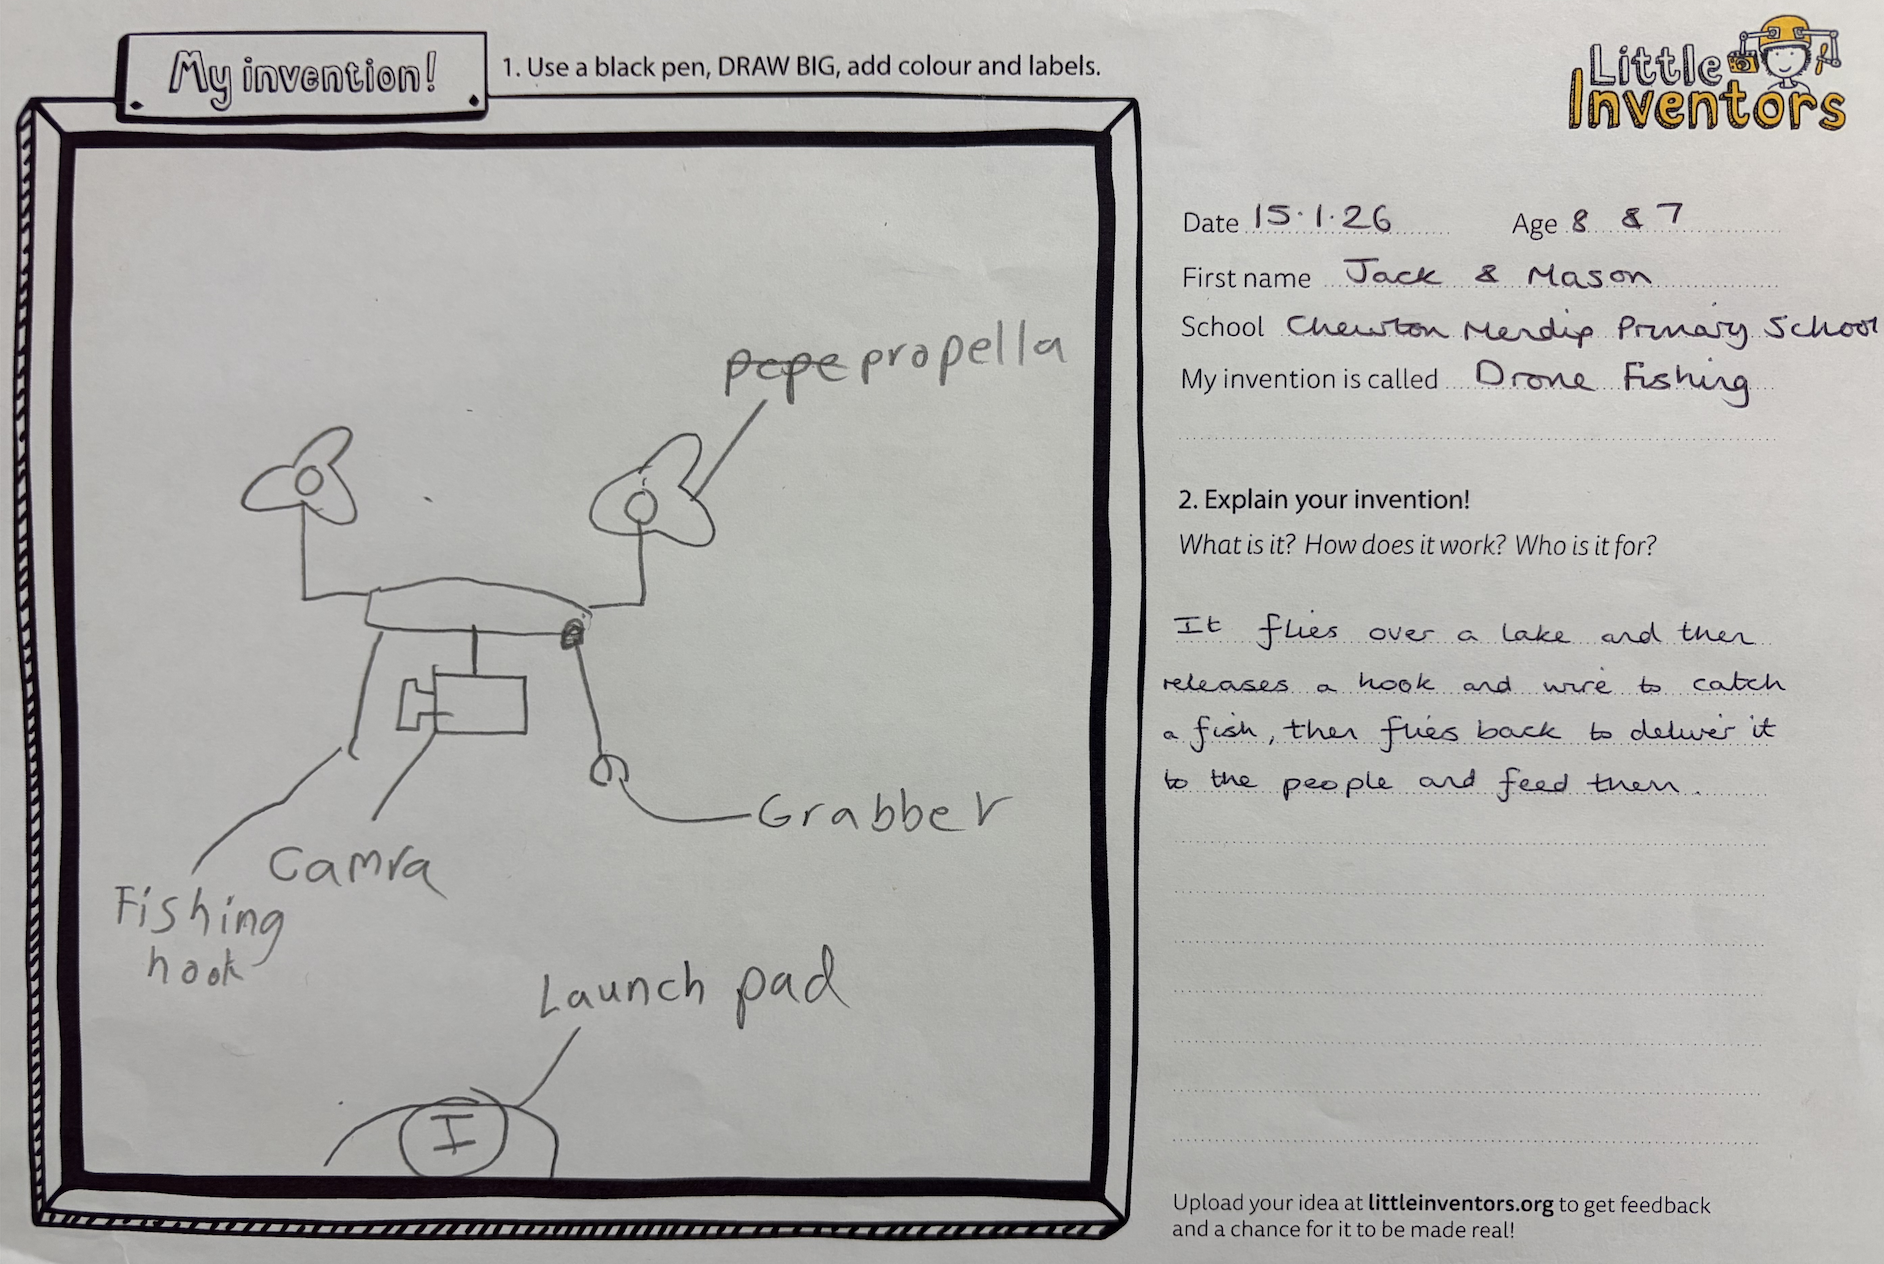 My invention!
1. Use a black pen, DRAW BIG, add colour and labels.
Little
Inventors
Date 15.1.26 Age 8 & 7
First name Jack & Mason
School Chewton Mendip Primary School
My invention is called Drone Fishing
2. Explain your invention!
What is it? How does it work? Who is it for?
It flies over a lake and then
releases a hook and wire to catch
a fish, then flies back to deliver it
to the people and feed them.
pepe propella
Grabber
Camra
Fishing
hook
Launch pad
I
Upload your idea at littleinventors.org to get feedback
and a chance for it to be made real!